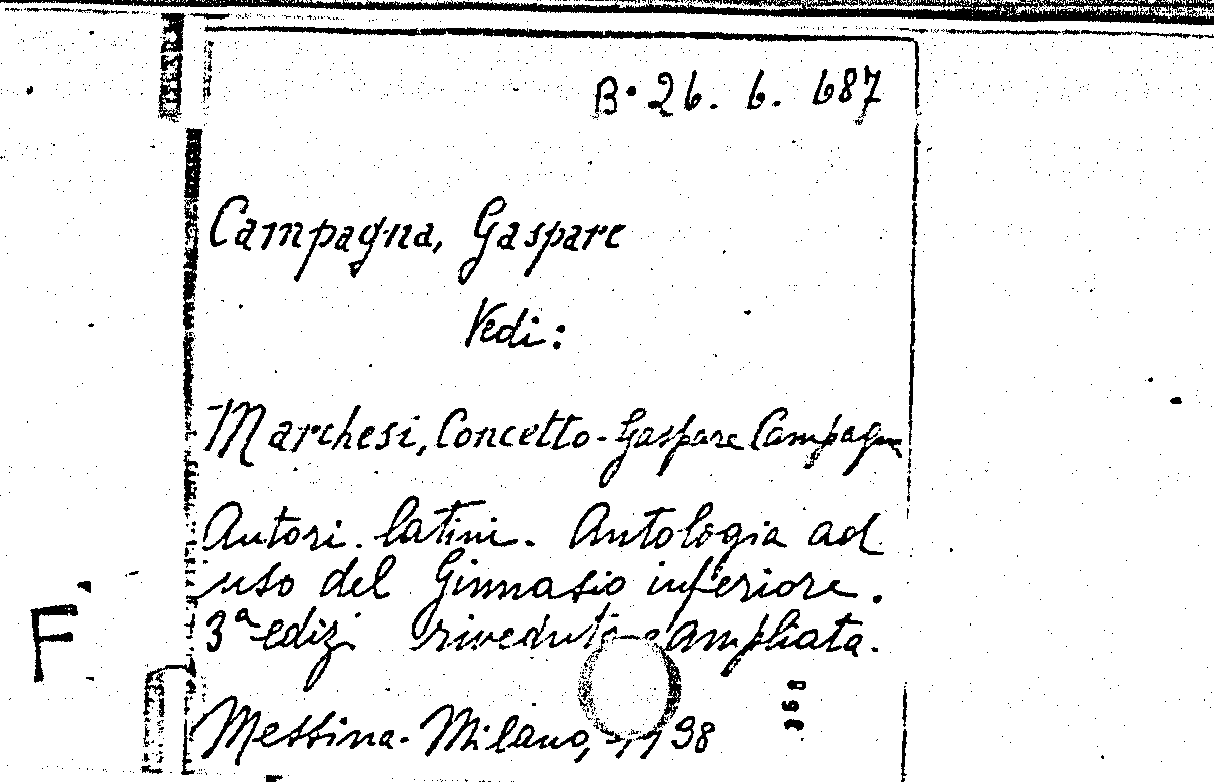 B. 26. 6. 687
Campagna, Gaspare
Vedi:
Marchesi, Concetto - Gaspare Campagna
Autori latini. Antologia ad
uso del Ginnasio inferiore.
3ª ediz. riveduta e ampliata.
F
358
Messina - Milano, 1938